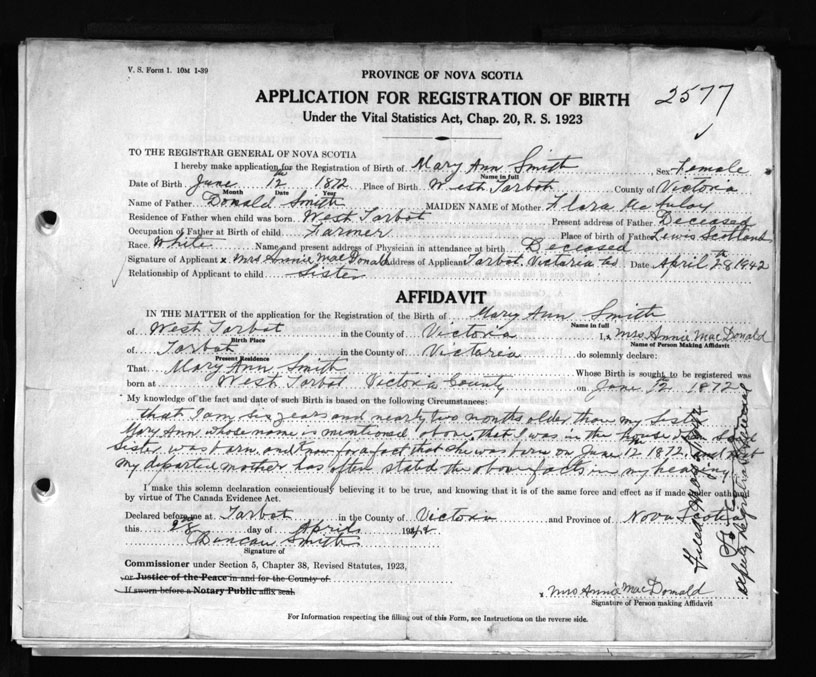 V. S. Form 1. 10M 1-39
PROVINCE OF NOVA SCOTIA
APPLICATION FOR REGISTRATION OF BIRTH 2577
Under the Vital Statistics Act, Chap. 20, R. S. 1923
TO THE REGISTRAR GENERAL OF NOVA SCOTIA
I hereby make application for Registration of Birth of Mary Ann Smith Sex Female
Name in full
Date of Birth June 12th 1872 Place of Birth West Tarbot County of Victoria
Month Date Year
Name of Father Donald Smith MAIDEN NAME of Mother Flora McAulay
Residence of Father when child was born West Tarbot Present address of Father Deceased
Occupation of Father at Birth of child Farmer Place of birth of Father Lewis Scotland
Race White Name and present address of Physician in attendance at birth Deceased
Signature of Applicant x Mrs Annie MacDonald Address of Applicant Tarbot Victoria Co Date April 28th 1942
Relationship of Applicant to child Sister
AFFIDAVIT
IN THE MATTER of the application for the Registration of the Birth of Mary Ann Smith
Name in full
of West Tarbot in the County of Victoria I, x Mrs Annie MacDonald
Birth Place Name of Person Making Affidavit
of Tarbot in the County of Victoria do solemnly declare:
Present Residence
That Mary Ann Smith Whose Birth is sought to be registered was
born at West Tarbot Victoria County on June 12th 1872
My knowledge of the fact and date of such Birth is based on the following Circumstances:
that I am six years and nearly two months older than my sister
Mary Ann whose name is mentioned above, that I was in the house when said
Sister was born and know for a fact that she was born on June 12th 1872 and that
my departed mother has often stated the above facts in my hearing
I make this solemn declaration conscientiously believing it to be true, and knowing that it is of the same force and effect as if made under oath and
by virtue of The Canada Evidence Act.
Declared before me at Tarbot in the County of Victoria and Province of Nova Scotia
this 28th day of April 1942
Duncan Smith
Signature of
Commissioner under Section 5, Chapter 38, Revised Statutes, 1923,
or Justice of the Peace in and for the County of
If sworn before a Notary Public affix seal.
x Mrs Annie MacDonald
Signature of Person making Affidavit
For Information respecting the filling out of this Form, see Instructions on the reverse side.
Deputy Registrar General